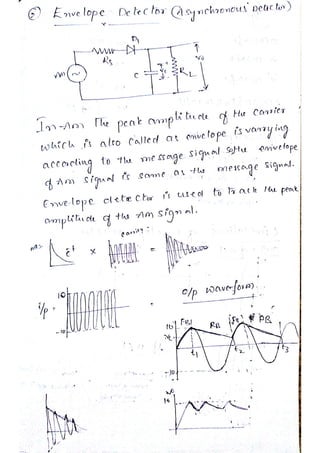 ② Envelope Detector (Asynchronous Detector)
D1
Rs
C
RL
Vo
In-Am The peak amplitude of the carrier
which is also called as envelope is varying
according to the message signal so the envelope
of Am signal is same as the message signal.
Envelope detector is used to Track the peak
amplitude of the Am signal.
carrier
e-t × =
i/p =
10
-10
o/p waveform
10
FB RB FB RB
t1 t2 t3
-10
Vo
10